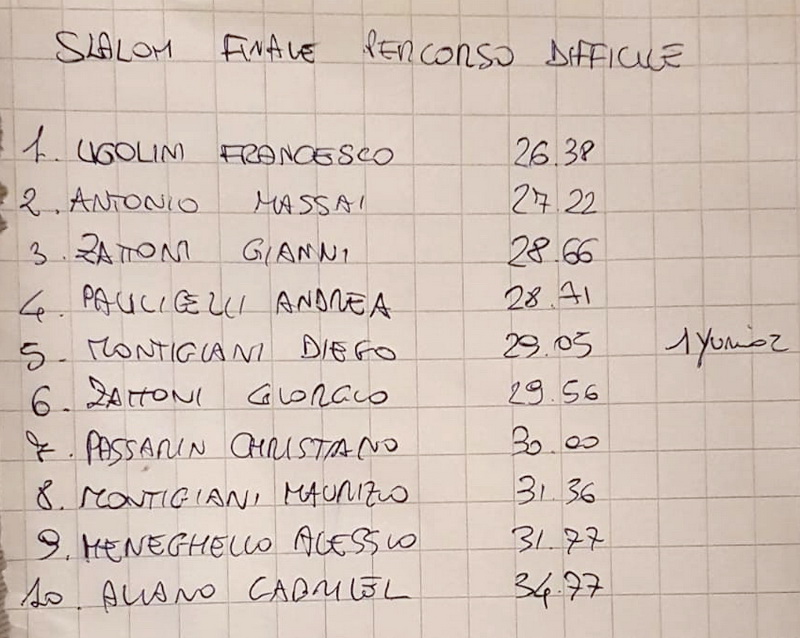 SLALOM FINALE PERCORSO DIFFICILE
1. UGOLINI FRANCESCO 26.38
2. ANTONIO MASSAI 27.22
3. ZATTONI GIANNI 28.66
4. PAULICELLI ANDREA 28.71
5. MONTIGIANI DIEGO 29.05 1 Yunior
6. ZATTONI GIORGIO 29.56
7. PASSARIN CHRISTIANO 30.00
8. MONTIGIANI MAURIZIO 31.36
9. MENEGHELLO ALESSIO 31.77
10. ALIANO 34.77